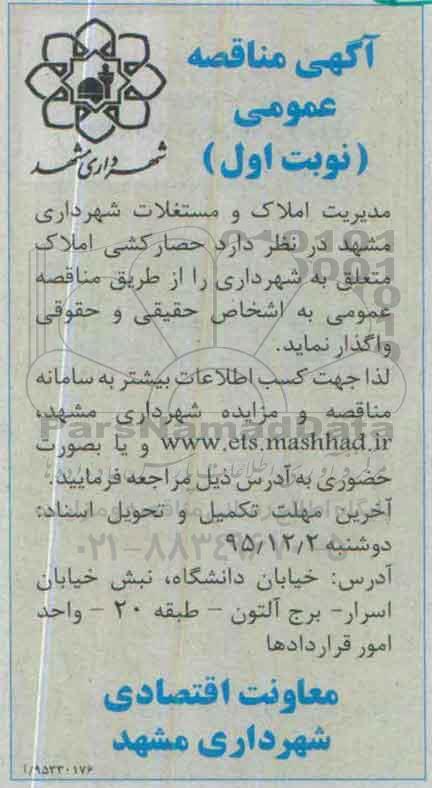 آگهی مناقصه
عمومی
(نوبت اول)
شهرداری مشهد
مدیریت املاک و مستغلات شهرداری
مشهد در نظر دارد حصارکشی املاک
متعلق به شهرداری را از طریق مناقصه
عمومی به اشخاص حقیقی و حقوقی
واگذار نماید.
لذا جهت کسب اطلاعات بیشتر به سامانه
مناقصه و مزایده شهرداری مشهد،
www.ets.mashhad.ir و یا بصورت
حضوری به آدرس ذیل مراجعه فرمایید.
آخرین مهلت تکمیل و تحویل اسناد:
دوشنبه ۹۵/۱۲/۲
آدرس: خیابان دانشگاه، نبش خیابان
اسرار- برج آلتون - طبقه ۲۰ - واحد
امور قراردادها
معاونت اقتصادی
شهرداری مشهد
۹۵۳۳۰۱۷۶/آ
ParsNamadData